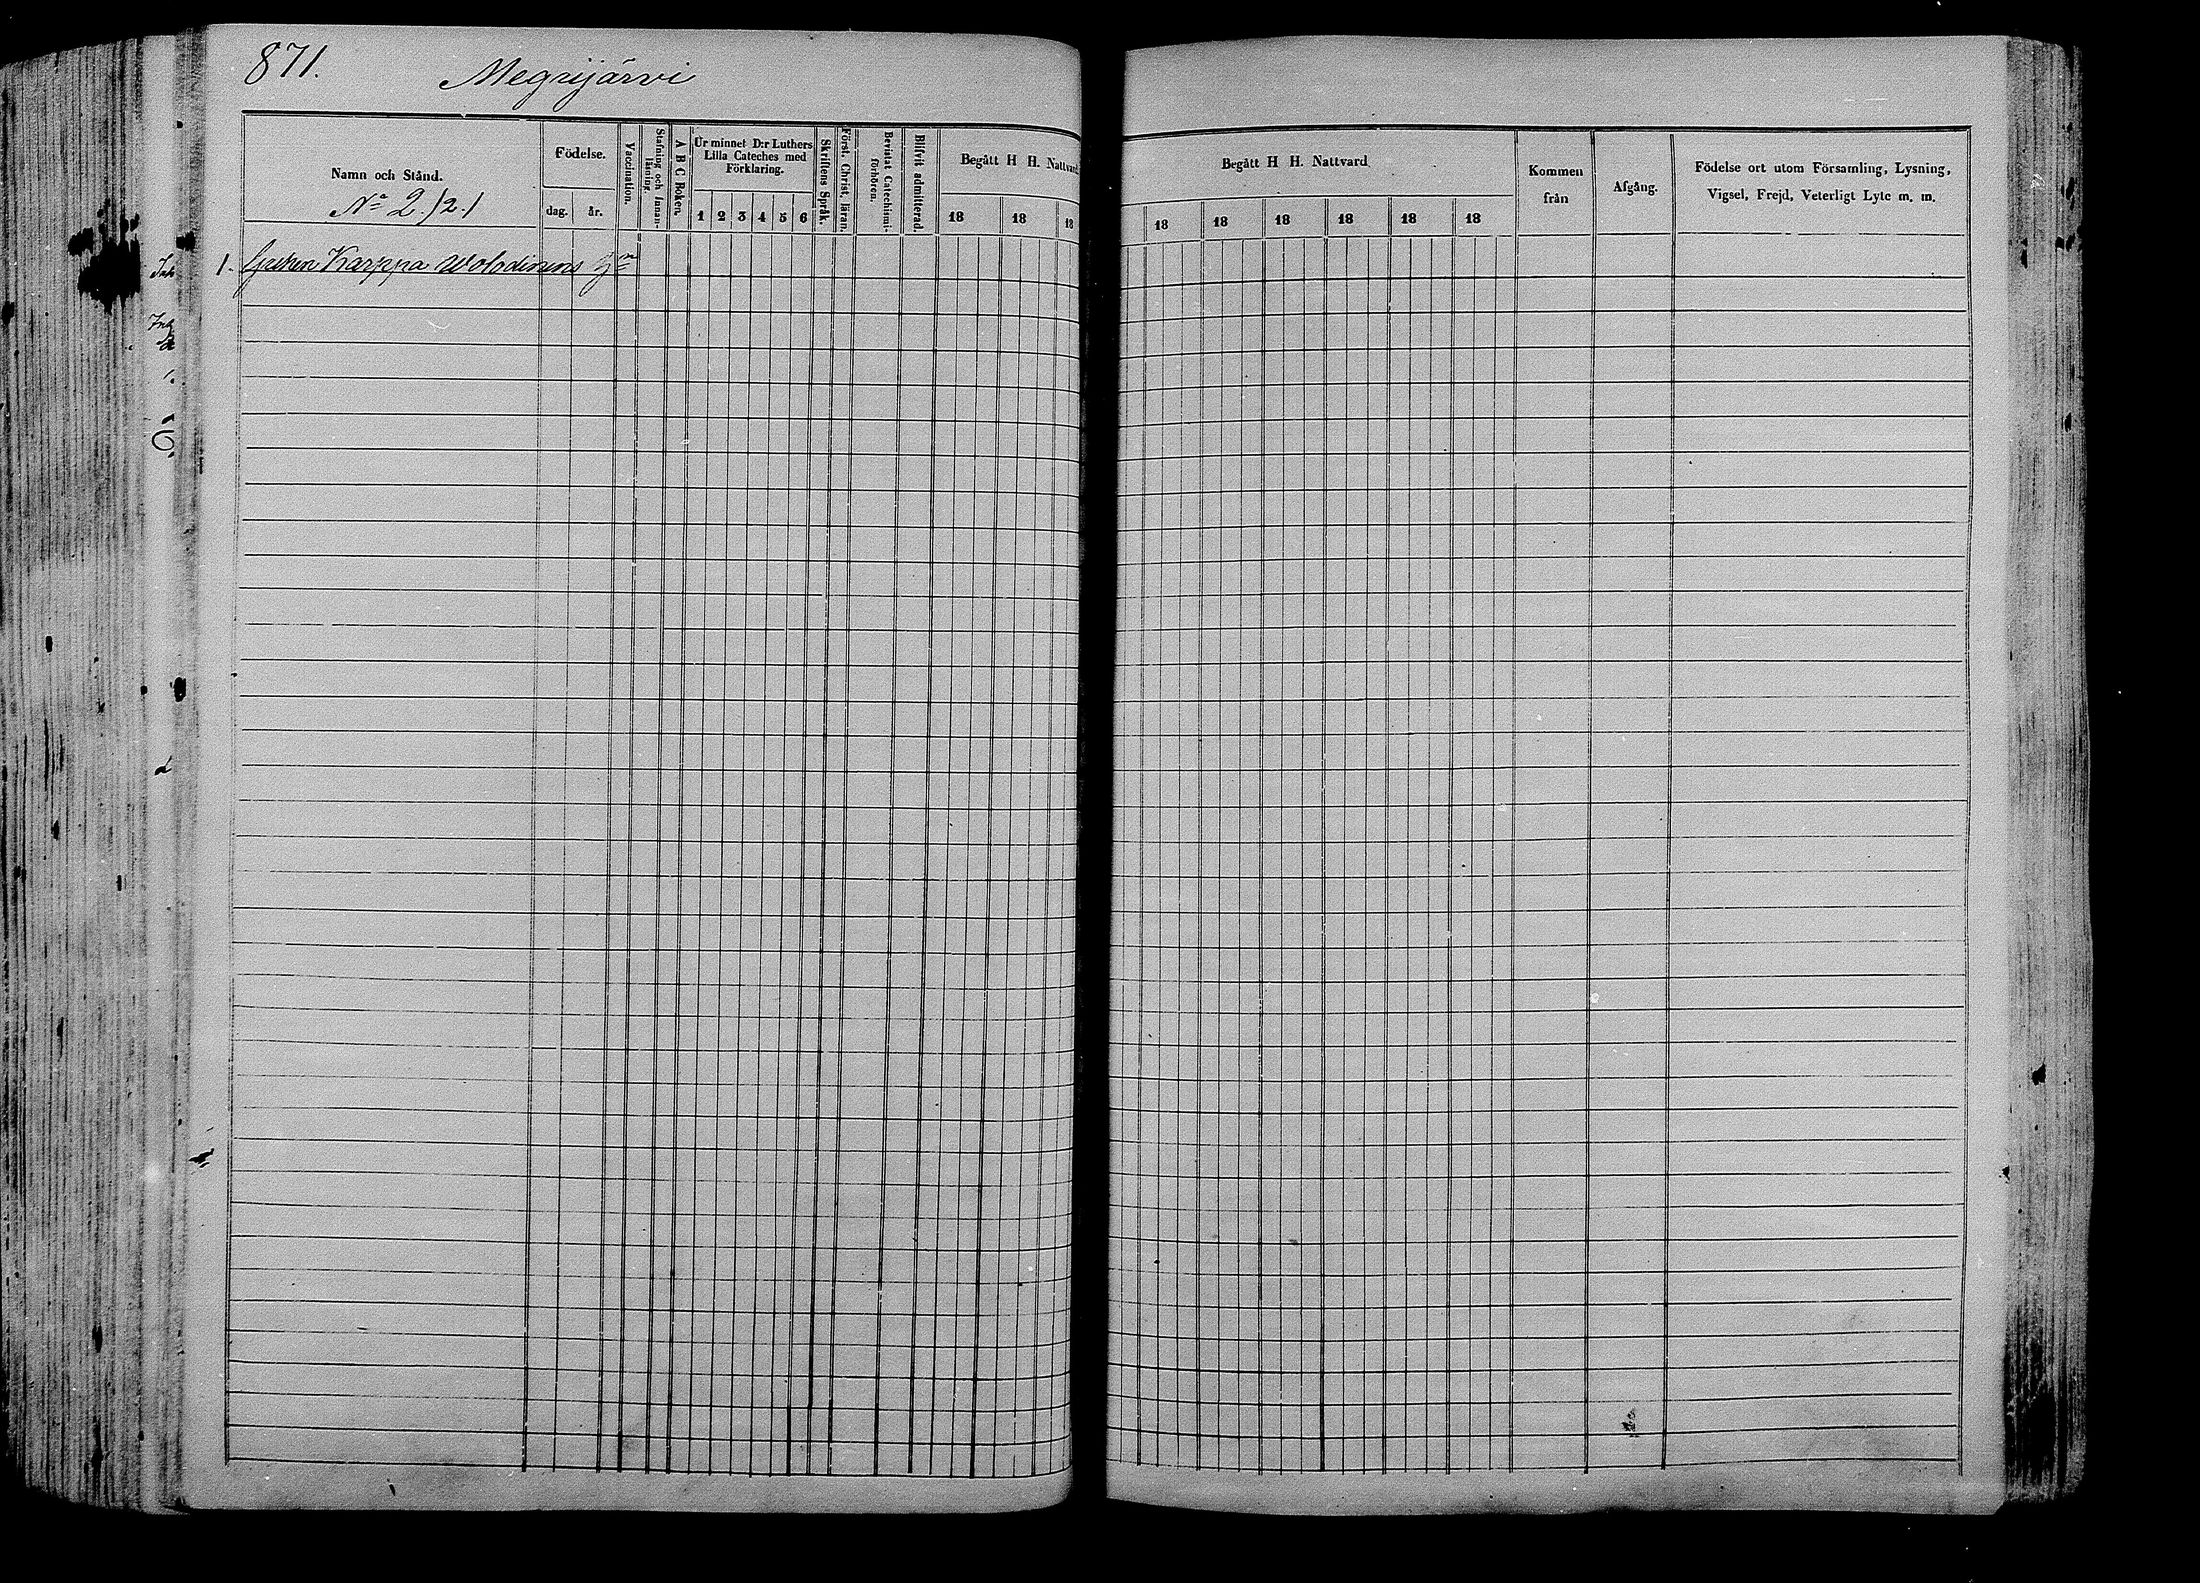 871.
Megrijärvi
Namn och Stånd.
No 2./2./
Födelse.
dag. år.
Vaccination.
Stafning och Innan-
läsning.
A B C Boken.
Ur minnet D:r Luthers
Lilla Cateches med
Förklaring.
1 2 3 4 5 6
Skriftens Språk.
Först. Christ. läran.
Bevistat Catechismi-
förhören.
Blifvit admitterad.
Begått H H. Nattvard.
18 18 18
1. Karppa Wolodinens
Begått H H. Nattvard
18 18 18 18 18 18
Kommen
från
Afgång.
Födelse ort utom Församling, Lysning,
Vigsel, Frejd, Veterligt Lyte m. m.